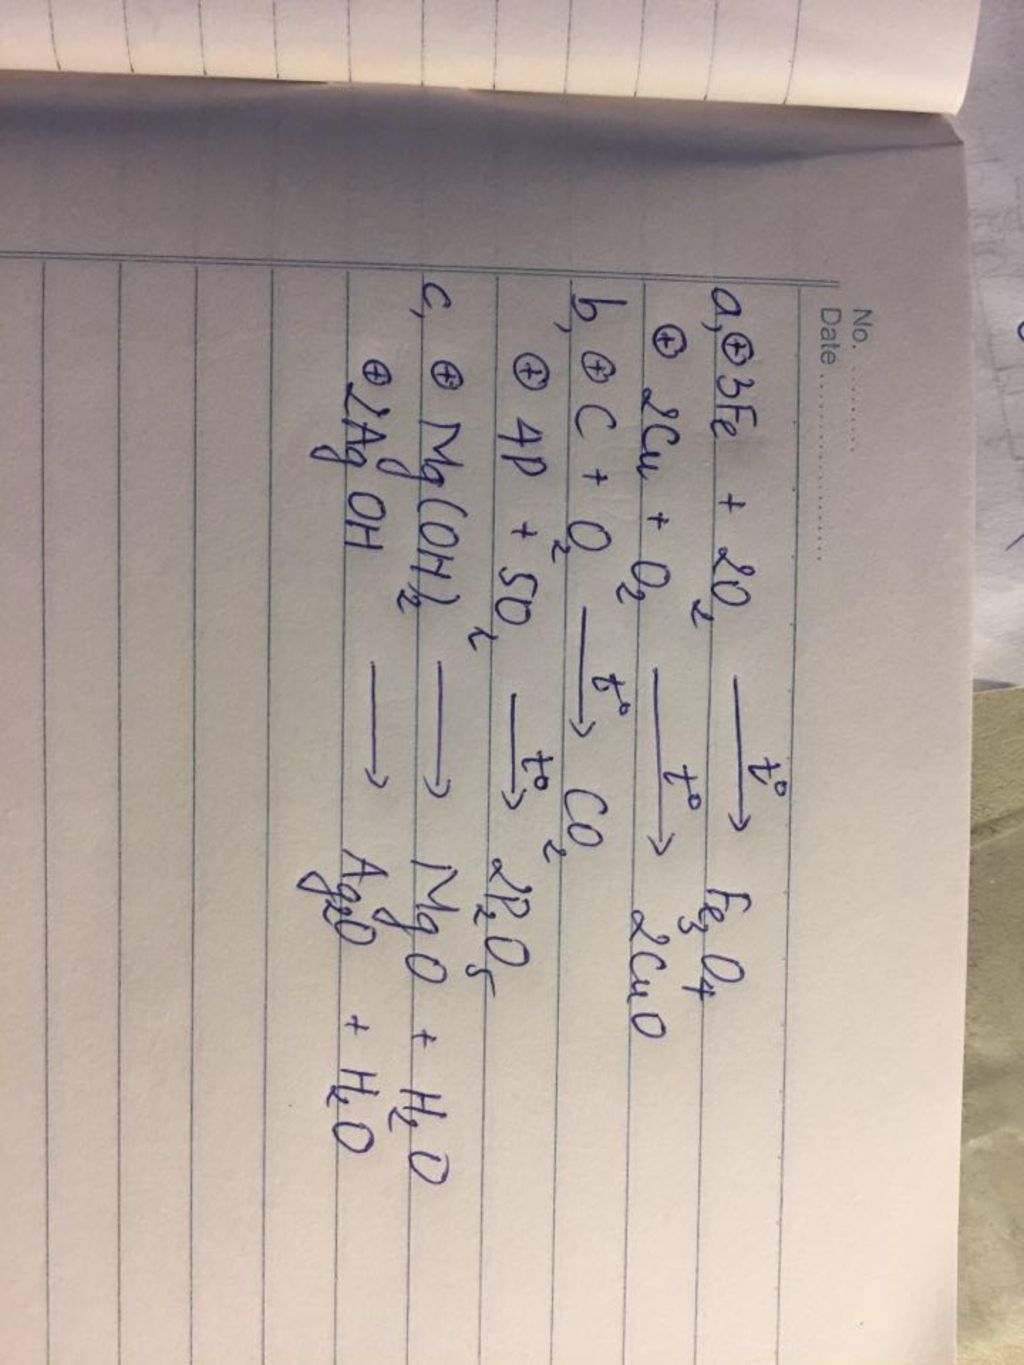 No. ............
Date ...................
a, ⊕ 3Fe + 2O₂ —t°→ Fe₃O₄
⊕ 2Cu + O₂ —t°→ 2CuO
b, ⊕ C + O₂ —t°→ CO₂
⊕ 4P + 5O₂ —t°→ 2P₂O₅
c, ⊕ Mg(OH)₂ ⟶ MgO + H₂O
⊕ 2AgOH ⟶ Ag₂O + H₂O